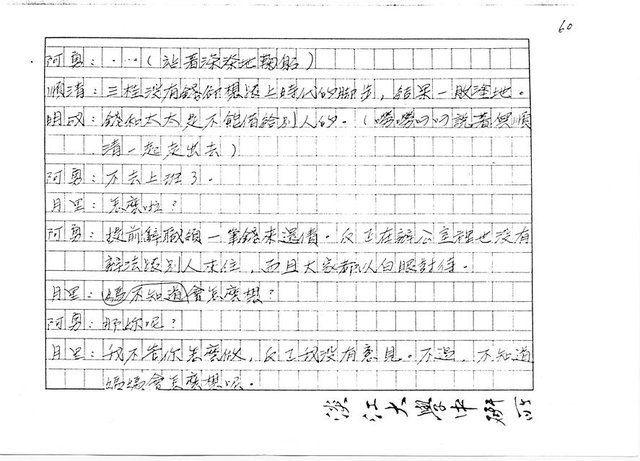 60
阿勇：‥‥（站着深深地鞠躬）
順清：三桂没有錢卻想談上時代的脚步，結果一敗塗地。
明政：錢和太太是不能借給別人的。（嘮嘮叨叨說着與順
清一起走出去）
阿勇：不去上班了。
月里：怎麼啦？
阿勇：提前辭職領一筆錢來還債。反正在辦公室裡也没有
辦法談別人来往，而且大家都以白眼對待。
月里：媽不知道會怎麼想？
阿勇：那你呢？
月里：我不管你怎麼做，反正我没有意見。不過，不知道
媽媽會怎麼想呢。
淡江大學中研所